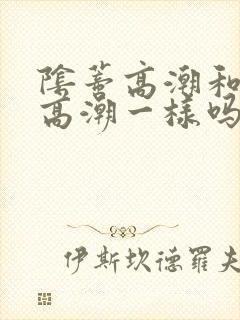 陰蒂高潮和
高潮一樣吗
伊斯坎德羅夫